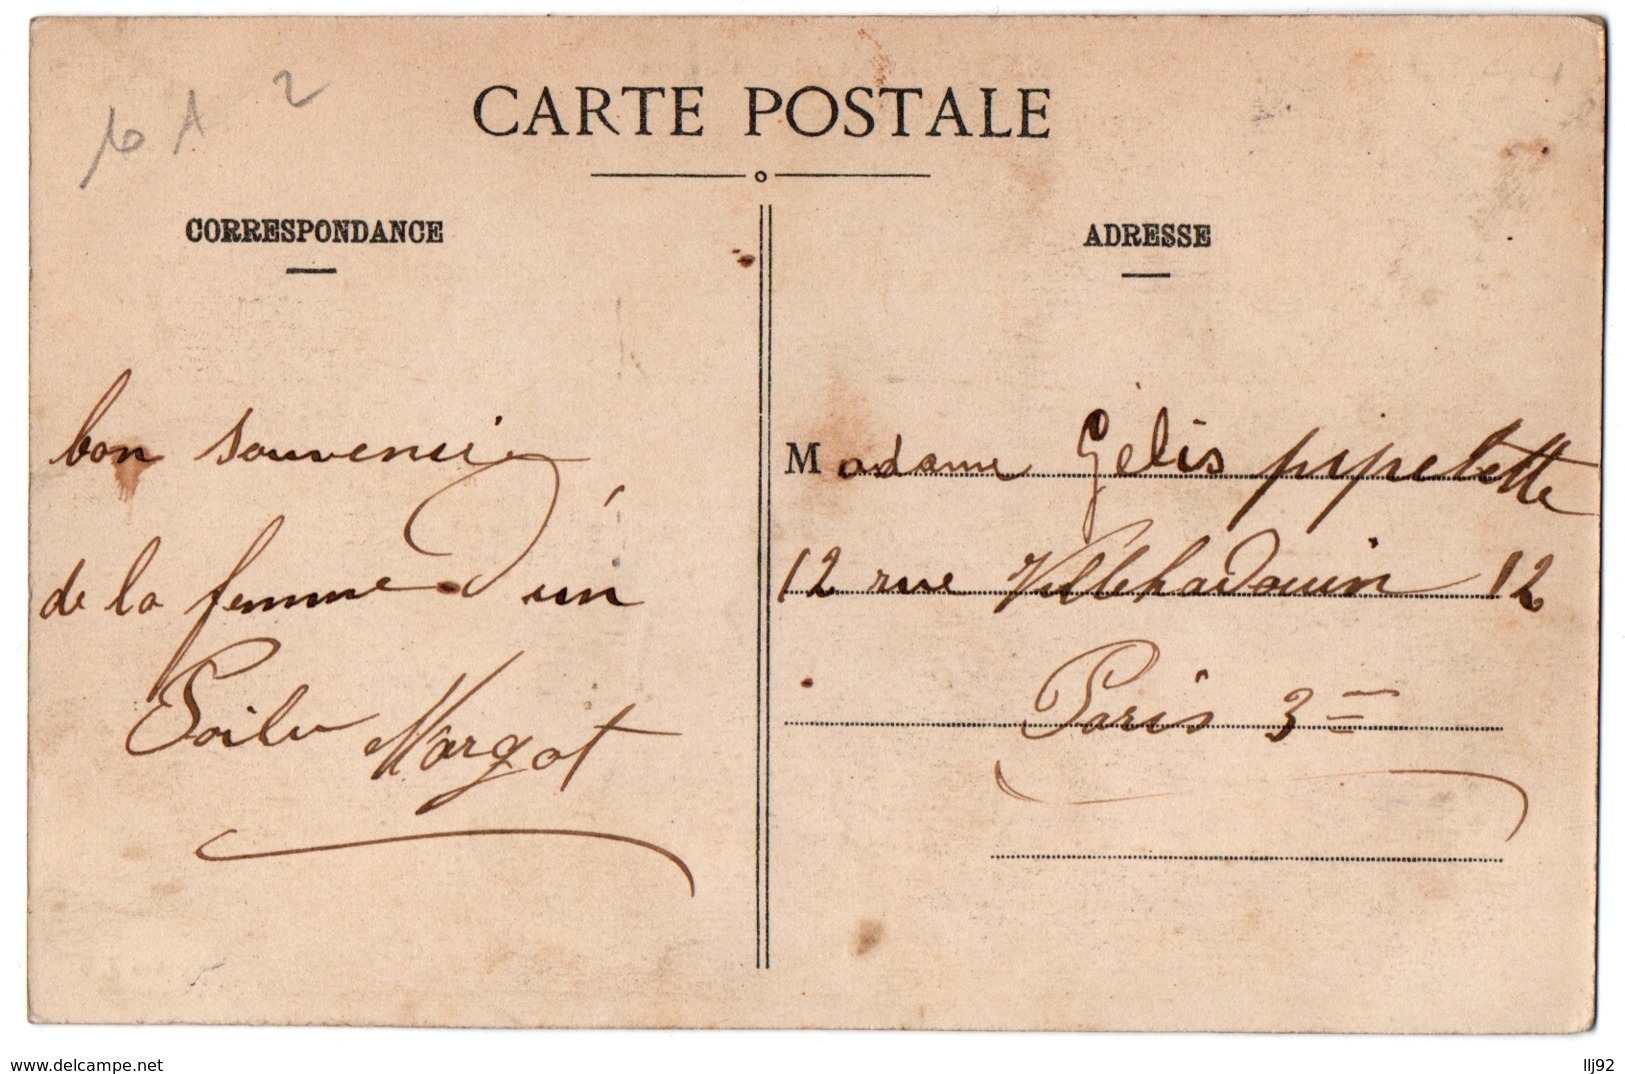 CARTE POSTALE
CORRESPONDANCE
bon souvenir
de la femme d'un
Poilu Margot
ADRESSE
Madame Gélis pipelette
12 rue Villehadouin 12
Paris 3me
www.delcampe.net
llj92